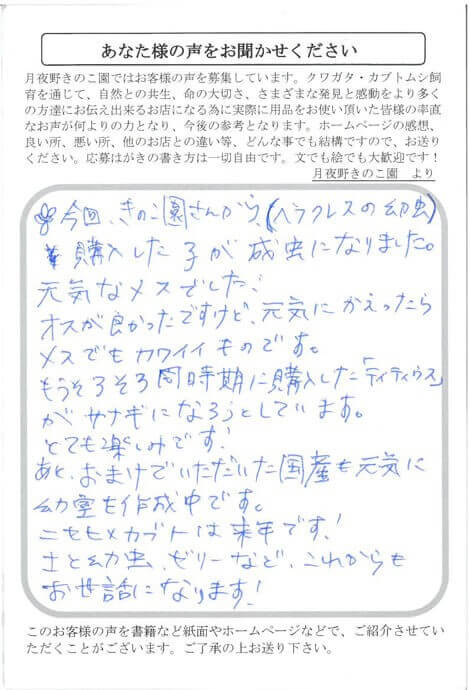 あなた様の声をお聞かせください
月夜野きのこ園ではお客様の声を募集しています。クワガタ・カブトムシ飼
育を通じて、自然との共生、命の大切さ、さまざまな発見と感動をより多く
の方達にお伝え出来るお店になる為に実際に用品をお使い頂いた皆様の率直
なお声が何よりの力となり、今後の参考となります。ホームページの感想、
良い所、悪い所、他のお店との違い等、どんな事でも結構ですので、お送り
ください。応募はがきの書き方は一切自由です。文でも絵でも大歓迎です！
月夜野きのこ園　より
今回、きのこ園さんから、(ヘラクレスの幼虫)
購入した子が成虫になりました。
元気なメスでした!
オスが良かったですけど、元気にかえったら
メスでもカワイイものです。
もうそろそろ同時期に購入した「ティティウス」
がサナギになろうとしています。
とても楽しみです!
あと、おまけでいただいた国産も元気に
幼室を作成中です。
ニセヒメカブトは来年です!
土と幼虫、ゼリーなど、これからも
お世話になります!
このお客様の声を書籍など紙面やホームページなどで、ご紹介させてい
ただくことがございます。ご了承の上お送り下さい。